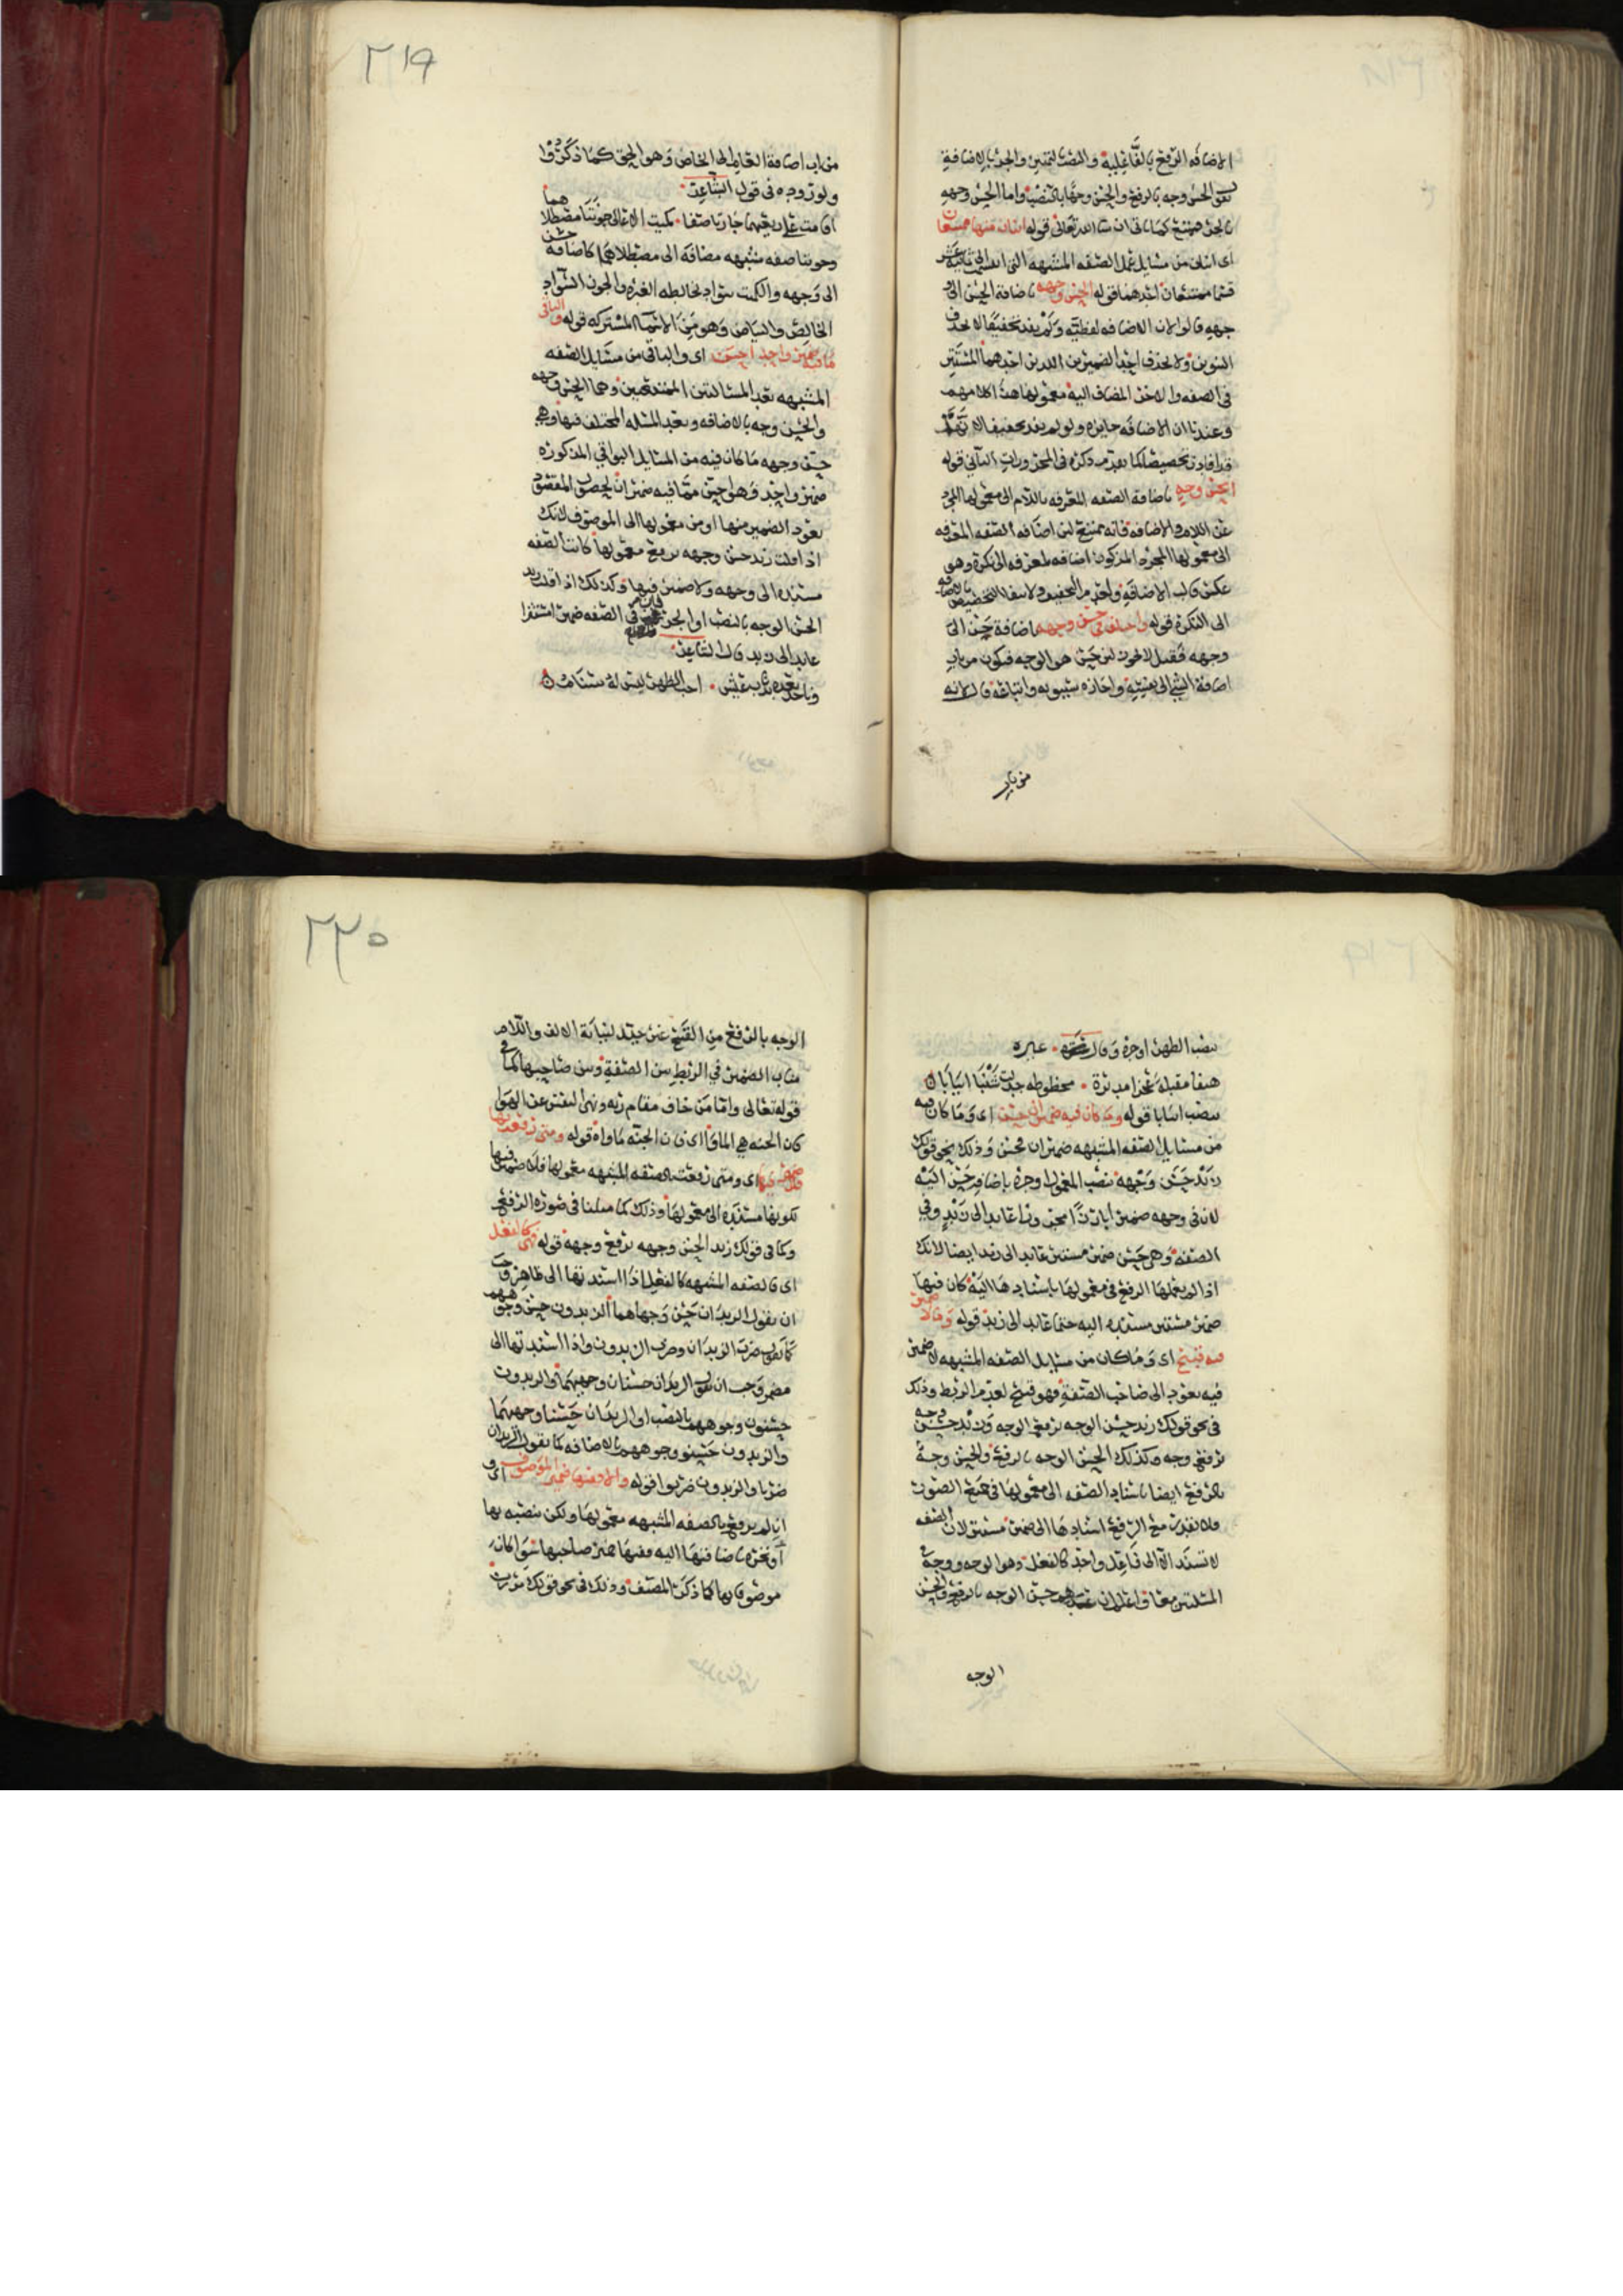 الاضافه الرفع بالفاعلية والنصب للتمييز والجر بالاضافة
نحو الحسن وجه بالرفع والحسن وجها بالنصب واما الحسن وجهه
بالجر فممتنع كما ياتي ان شا الله تعالى قوله اثنان منها ممتنعان
اى اثنان من مسايل عمل الصفه المشبهه التى انتهت الى ثمانية عشر
قسما ممتنعان احدهما قوله الحسن وجهه باضافة الحسن الى و
جهه قالوا لان الاضافه لفظيه ولم يفد تخفيفا لا بحذف
التنوين ولا بحذف احد الضميرين اللذين احدهما المستتر
فى الصفه والاخر المضاف اليه معمولها هذا كلامهم
وعندنا ان الاضافه جايزه ولو لم يفد تخفيفا لانها
قد افادت تخصيصا كما تقدم ذكره فى المجرورات الثانى قوله
الحسن وجه باضافة الصفه المعرفه باللام الى معمولها المجرد
عن اللام والاضافه فانه ممتنع لان اضافه الصفه المعرفه
الى معمولها المجرد المذكور اضافه لمعرفه الى نكرة وهو
عكس قالب الاضافة ولعدم التخفيف ولانتفا التخصيص بالاضافه
الى النكرة قوله واختلف فى حسن وجهه باضافة حسن الى
وجهه فقيل لا يجوز لان حسن هو الوجه فيكون من باب
اضافة الشى الى نفسه واجازه سيبويه واتباعه قالوا لانه
من باب
٢١٩
من باب اضافة العام الى الخاص وهو الحق كما ذكروا
ولوروده فى قول الشاعر
اقامت على ربعيهما جارتا صفا كميت الاعالى جونتا مصطلاهما
وجونتا صفه مشبهه مضافه الى مصطلاهما كاضافه حسن
الى وجهه والكميت سواد يخالطه الغبره والجون السواد
الخالص والبياض وهو من الاسما المشتركه قوله والباقى
ما فيه ضمير واحد احسن اى والباقى من مسايل الصفه
المشبهه بعد المسالتين الممتنعتين وهما الحسن وجهه
والحسن وجه بالاضافه وبعد المسله المختلف فيها وهى
حسن وجهه ما كان فيه من المسايل البواقي المذكوره
ضمير واحد فهو احسن مما فيه ضميران لحصول المقصود
بعود الضمير منها او من معمولها الى الموصوف لانك
اذا قلت زيد حسن وجهه برفع معمولها كانت الصفه
مسنده الى وجهه ولا ضمير فيها وكذلك اذا قلت زيد
الحسن الوجه بالنصب او الجر فى الصفه ضمير استقرا
عايد الى زيد قال الشاعر
وناخذ بعده بذناب عيش احب الظهر ليس له سنام
بنصب الظهر او جره وقال غيره
هيفا مقبلة عجزا مدبرة محطوطه جدلت شنبا انيابا
بنصب انيابا قوله وما كان فيه ضميران حسن اى وما كان فيه
من مسايل الصفه المشبهه ضميران فحسن وذلك نحو قولك
زيد حسن وجهه بنصب المعمول او جره باضافة حسن اليه
لان فى وجهه ضميرا بارزا مجرورا عايدا الى زيد وفي
الصفه وهى حسن ضمير مستتر عايد الى زيد ايضا لانك
اذا لم تعملها الرفع فى معمولها باسنادها اليه كان فيها
ضمير مستتر مسنده اليه حتما عايد الى زيد قوله وما لا ضمير
فيه قبيح اى وما كان من مسايل الصفه المشبهه لا ضمير
فيه يعود الى صاحب الصفة فهو قبيح لعدم الربط وذلك
فى نحو قولك زيد حسن الوجه برفع الوجه وزيد حسن وجه
برفع وجه وكذلك الحسن الوجه بالرفع والحسن وجه
بالرفع ايضا باسناد الصفه الى معمولها فى جميع الصور
ولا تقدر مع الرفع اسنادها الى ضمير مستتر لان الصفه
لا تسند الا الى فاعل واحد كالفعل وهو الوجه ووجه فى
المسلتين معا واعلم ان حسن الوجه بالرفع والحسن
الوجه
٢٢٠
الوجه بالرفع من القبيح غير جيد لنيابة الالف واللام
مناب الضمير في الربط بين الصفة وبين صاحبها كما فى
قوله تعالى واما من خاف مقام ربه ونهى النفس عن الهوا
كان الجنه هي الماوا اى فان الجنه ماواه قوله ومتى رفعت بها
فلا ضمير فيها اى ومتى رفعت بالصفه المشبهه معمولها فلا ضمير فيها
لكونها مسنده الى معمولها وذلك كما مثلنا فى صورة الرفع
وكما فى قولك زيد الحسن وجهه برفع وجهه قوله فهى كالفعل
اى فالصفه المشبهه كالفعل اذا اسندتها الى ظاهر وجب
ان يقول الزيدان حسن وجهاهما الزيدون حسن وجوههم
كما تقول ضرب الزيدان وضرب الزيدون واذا اسندتها الى
مضمر وجب ان تقول الزيدان حسنان وجهيهما والزيدون
حسنون وجوههم بالنصب او الزيدان حسنا وجهيهما
والزيدون حسنو وجوههم بالاضافه كما تقول الزيدان
ضربا والزيدون ضربوا قوله والا ففيها ضمير الموصوف اى و
ان لم يرفع بالصفه المشبهه معمولها ولكن نصبته بها
او تجره باضافتها اليه ففيها ضمير صاحبها سوا كان
موصوفا بها كما ذكر المصنف وذلك فى نحو قولك مررت